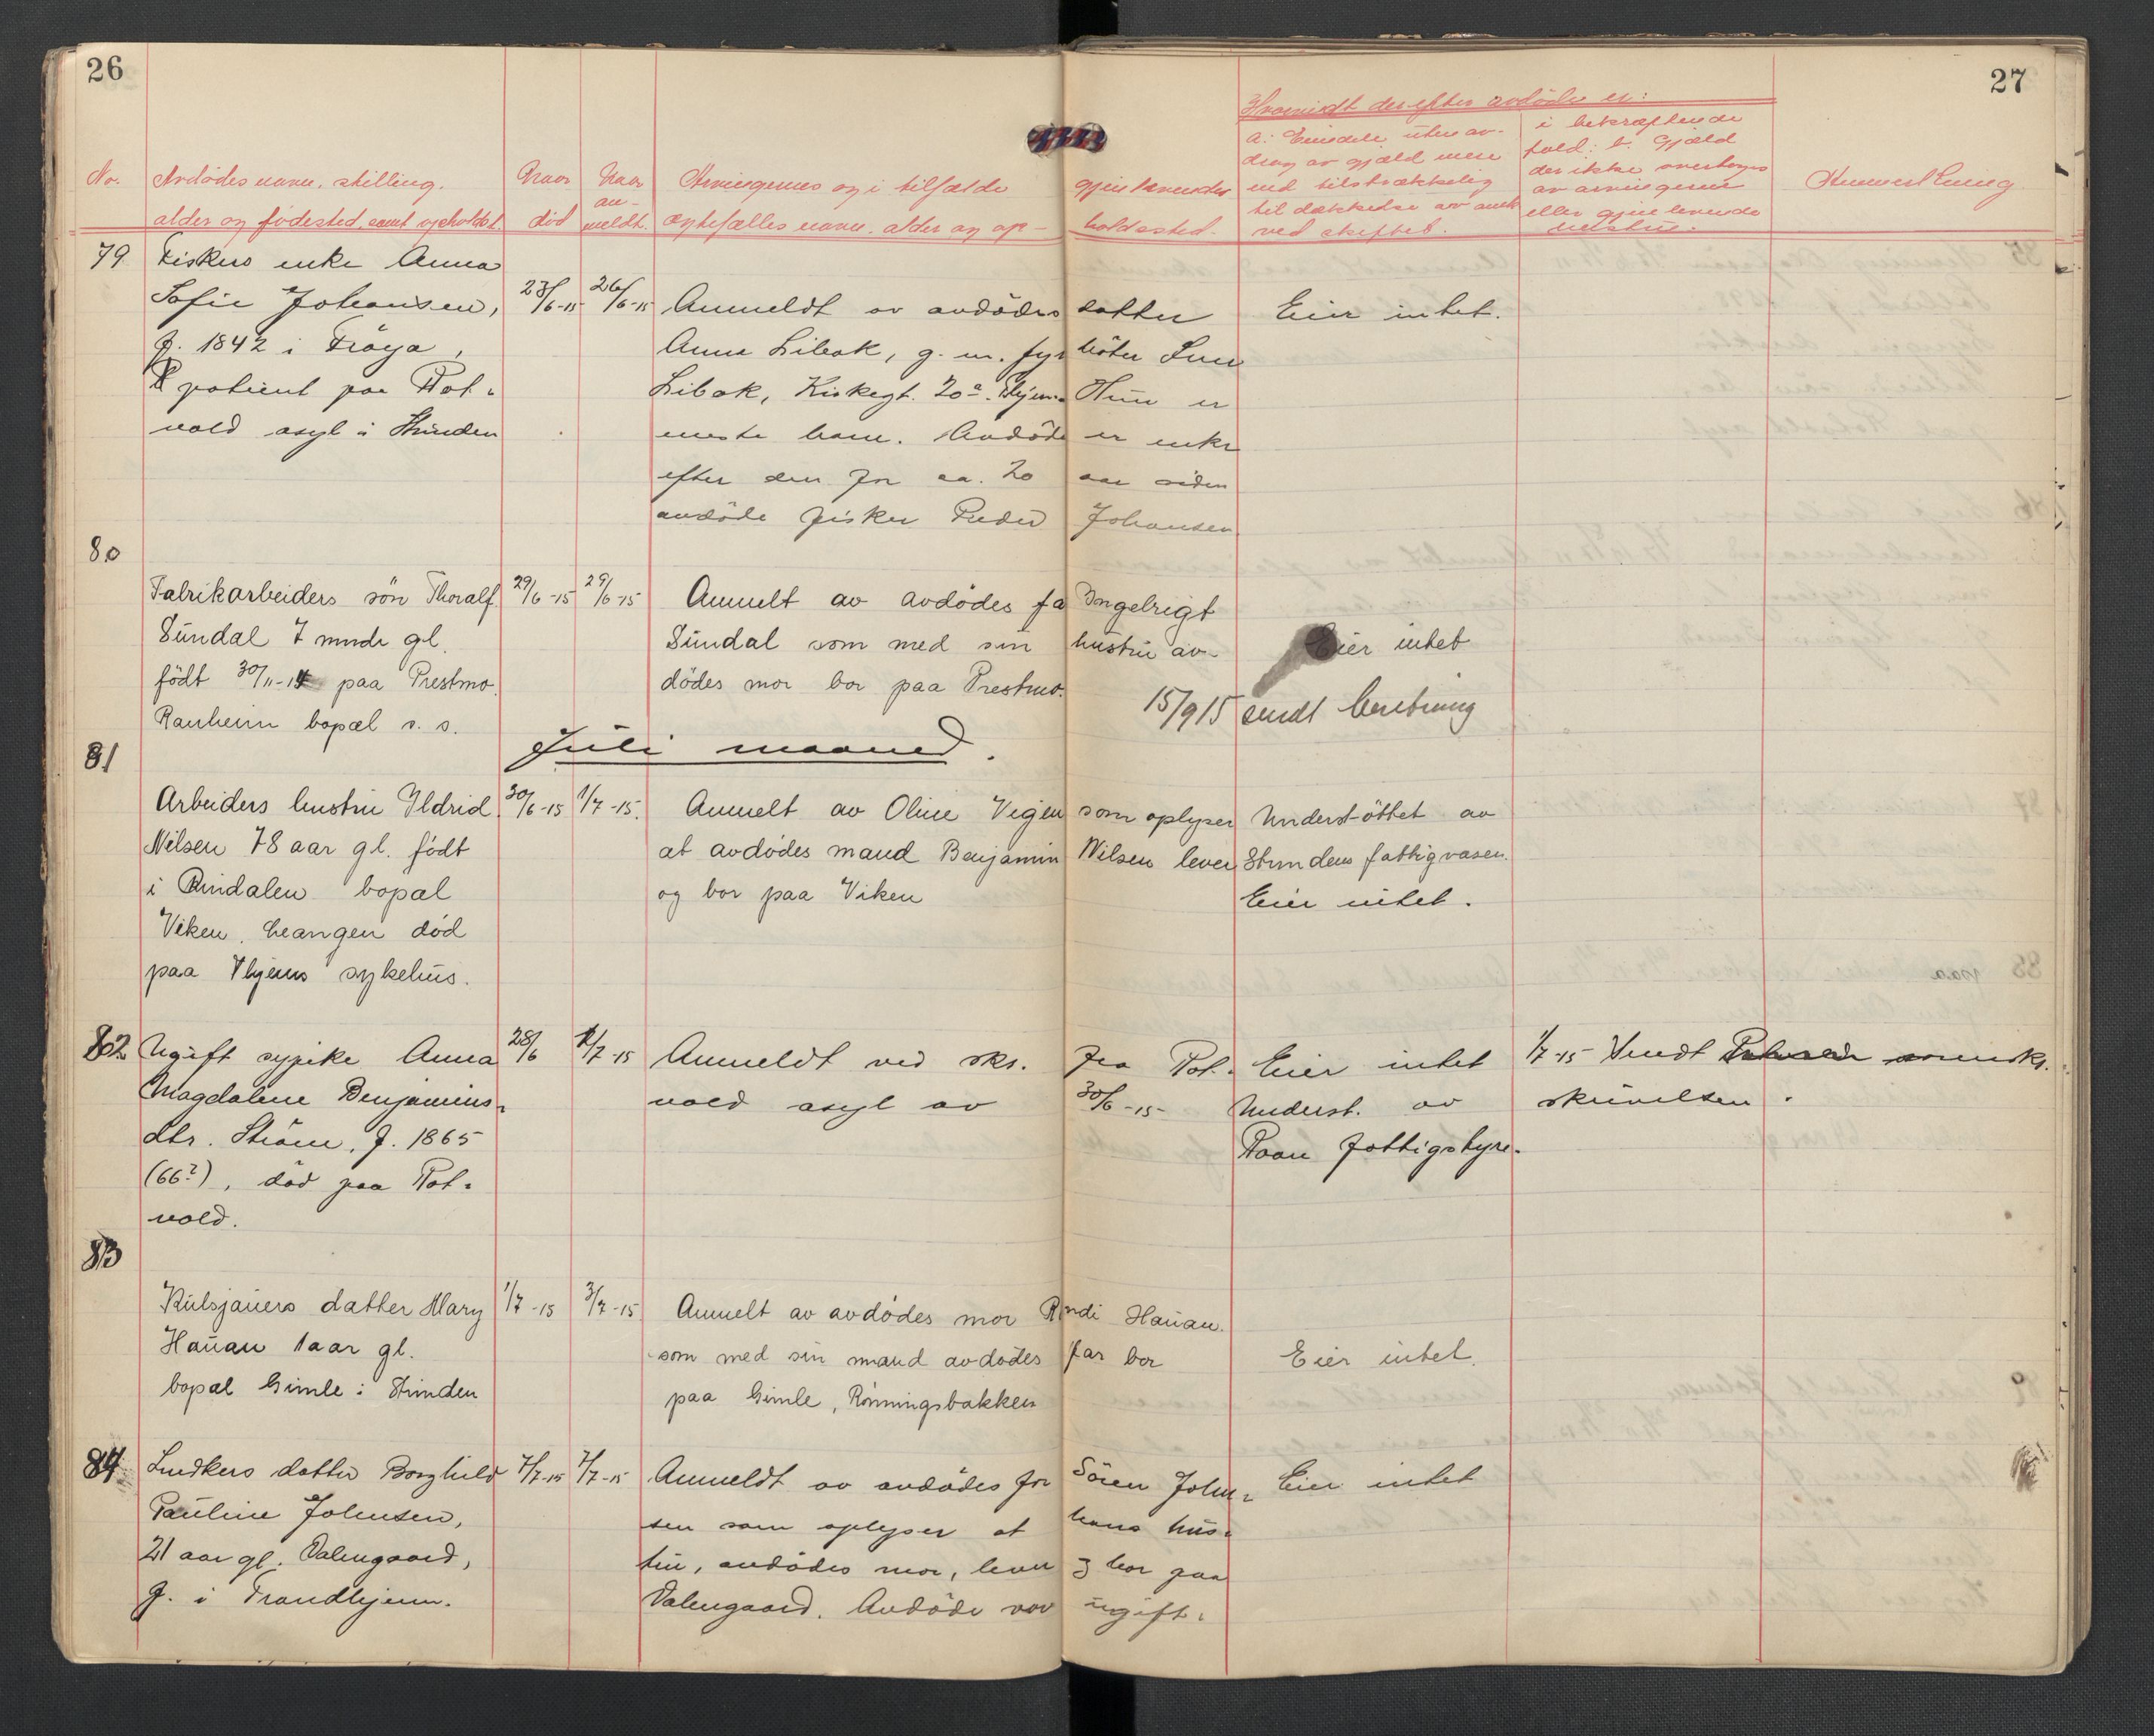 26
27
No.
Avdödes navn, stilling,
alder og födested, samt opholdst.
Naar
död
Naar
an-
meldt.
Arvingernes og i tilfælde gjenlevende
egtefælles navn, alder og op- holdssted.
Hvorvidt der efter avdöde er:
a: Eiendele uten av-
drag av gjæld mere
end tilstrækkelig
til dækkelse av
ved skiftet.
i bekræftende
fald: b. Gjæld
der ikke overtages
av arvingerne
eller gjenlevende
Anmerkning
79 Fiskers enke Anna
Sofie Johansen,
f. 1842 i Fröya,
patient paa Rot-
vold asyl i Strinden
23/6-15 26/6-15
Anmeldt av avdödes datter
Anna Libak, g. m. fyrböter
Libak, Kirkegt. 20a. Thjem. Hun er
eneste barn. Avdöde er enke
efter den for ca. 20 aar siden
avdöde fisker Peder Johansen
Eier intet.
80
Fabrikarbeiders sön Thoralf
Sundal 7 mndr gl.
födt 30/11-14 paa Prestmo.
Ranheim bopæl s. s.
29/6-15 29/6-15
Anmelt av avdödes fa Ingebrigt
Sundal som med sin hustru av-
dödes mor bor paa Prestmo.
Eier intet
15/9 15 sendt beretning
Juli maaned.
81
Arbeiders hustru Ildrid
Nilsen 78 aar gl. födt
i Rindalen bopæl
Viken, Leangen död
paa Thjems sykehus.
30/6-15 1/7-15.
Anmelt av Oline Vigen som oplyser
at avdödes mand Benjamin Nilsen lever
og bor paa Viken
Understöttet av
Strindens fattigvæsen.
Eier intet.
82 Ugift sypike Anna
Magdalene Benjamins-
dtr. Ström, f. 1865
(66?), död paa Rot-
vold.
28/6 1/7-15
Anmeldt ved skr. fra Rot-
vold asyl av 30/6-15-
Eier intet
Underst. av
Roan fattigstyre.
1/7-15 Sendt
skrivelsen.
83
Kulsjauers datter Mary
Hauan 1 aar gl.
bopæl Gimle i Strinden
1/7-15 3/7-15
Anmelt av avdödes mor Randi Hauan.
som med sin mand avdödes far bor
paa Gimle, Rönningsbakken
Eier intet.
84 Snedkers datter Borghild
Pauline Johnsen,
21 aar gl. Dalengaard,
f. i Trondhjem.
7/7-15 7/7-15
Anmeldt av avdödes far Sören John-
sen som oplyser at hans hus-
tru, avdödes mor, lever & bor paa
Dalengaard. Avdöde var ugift.
Eier intet